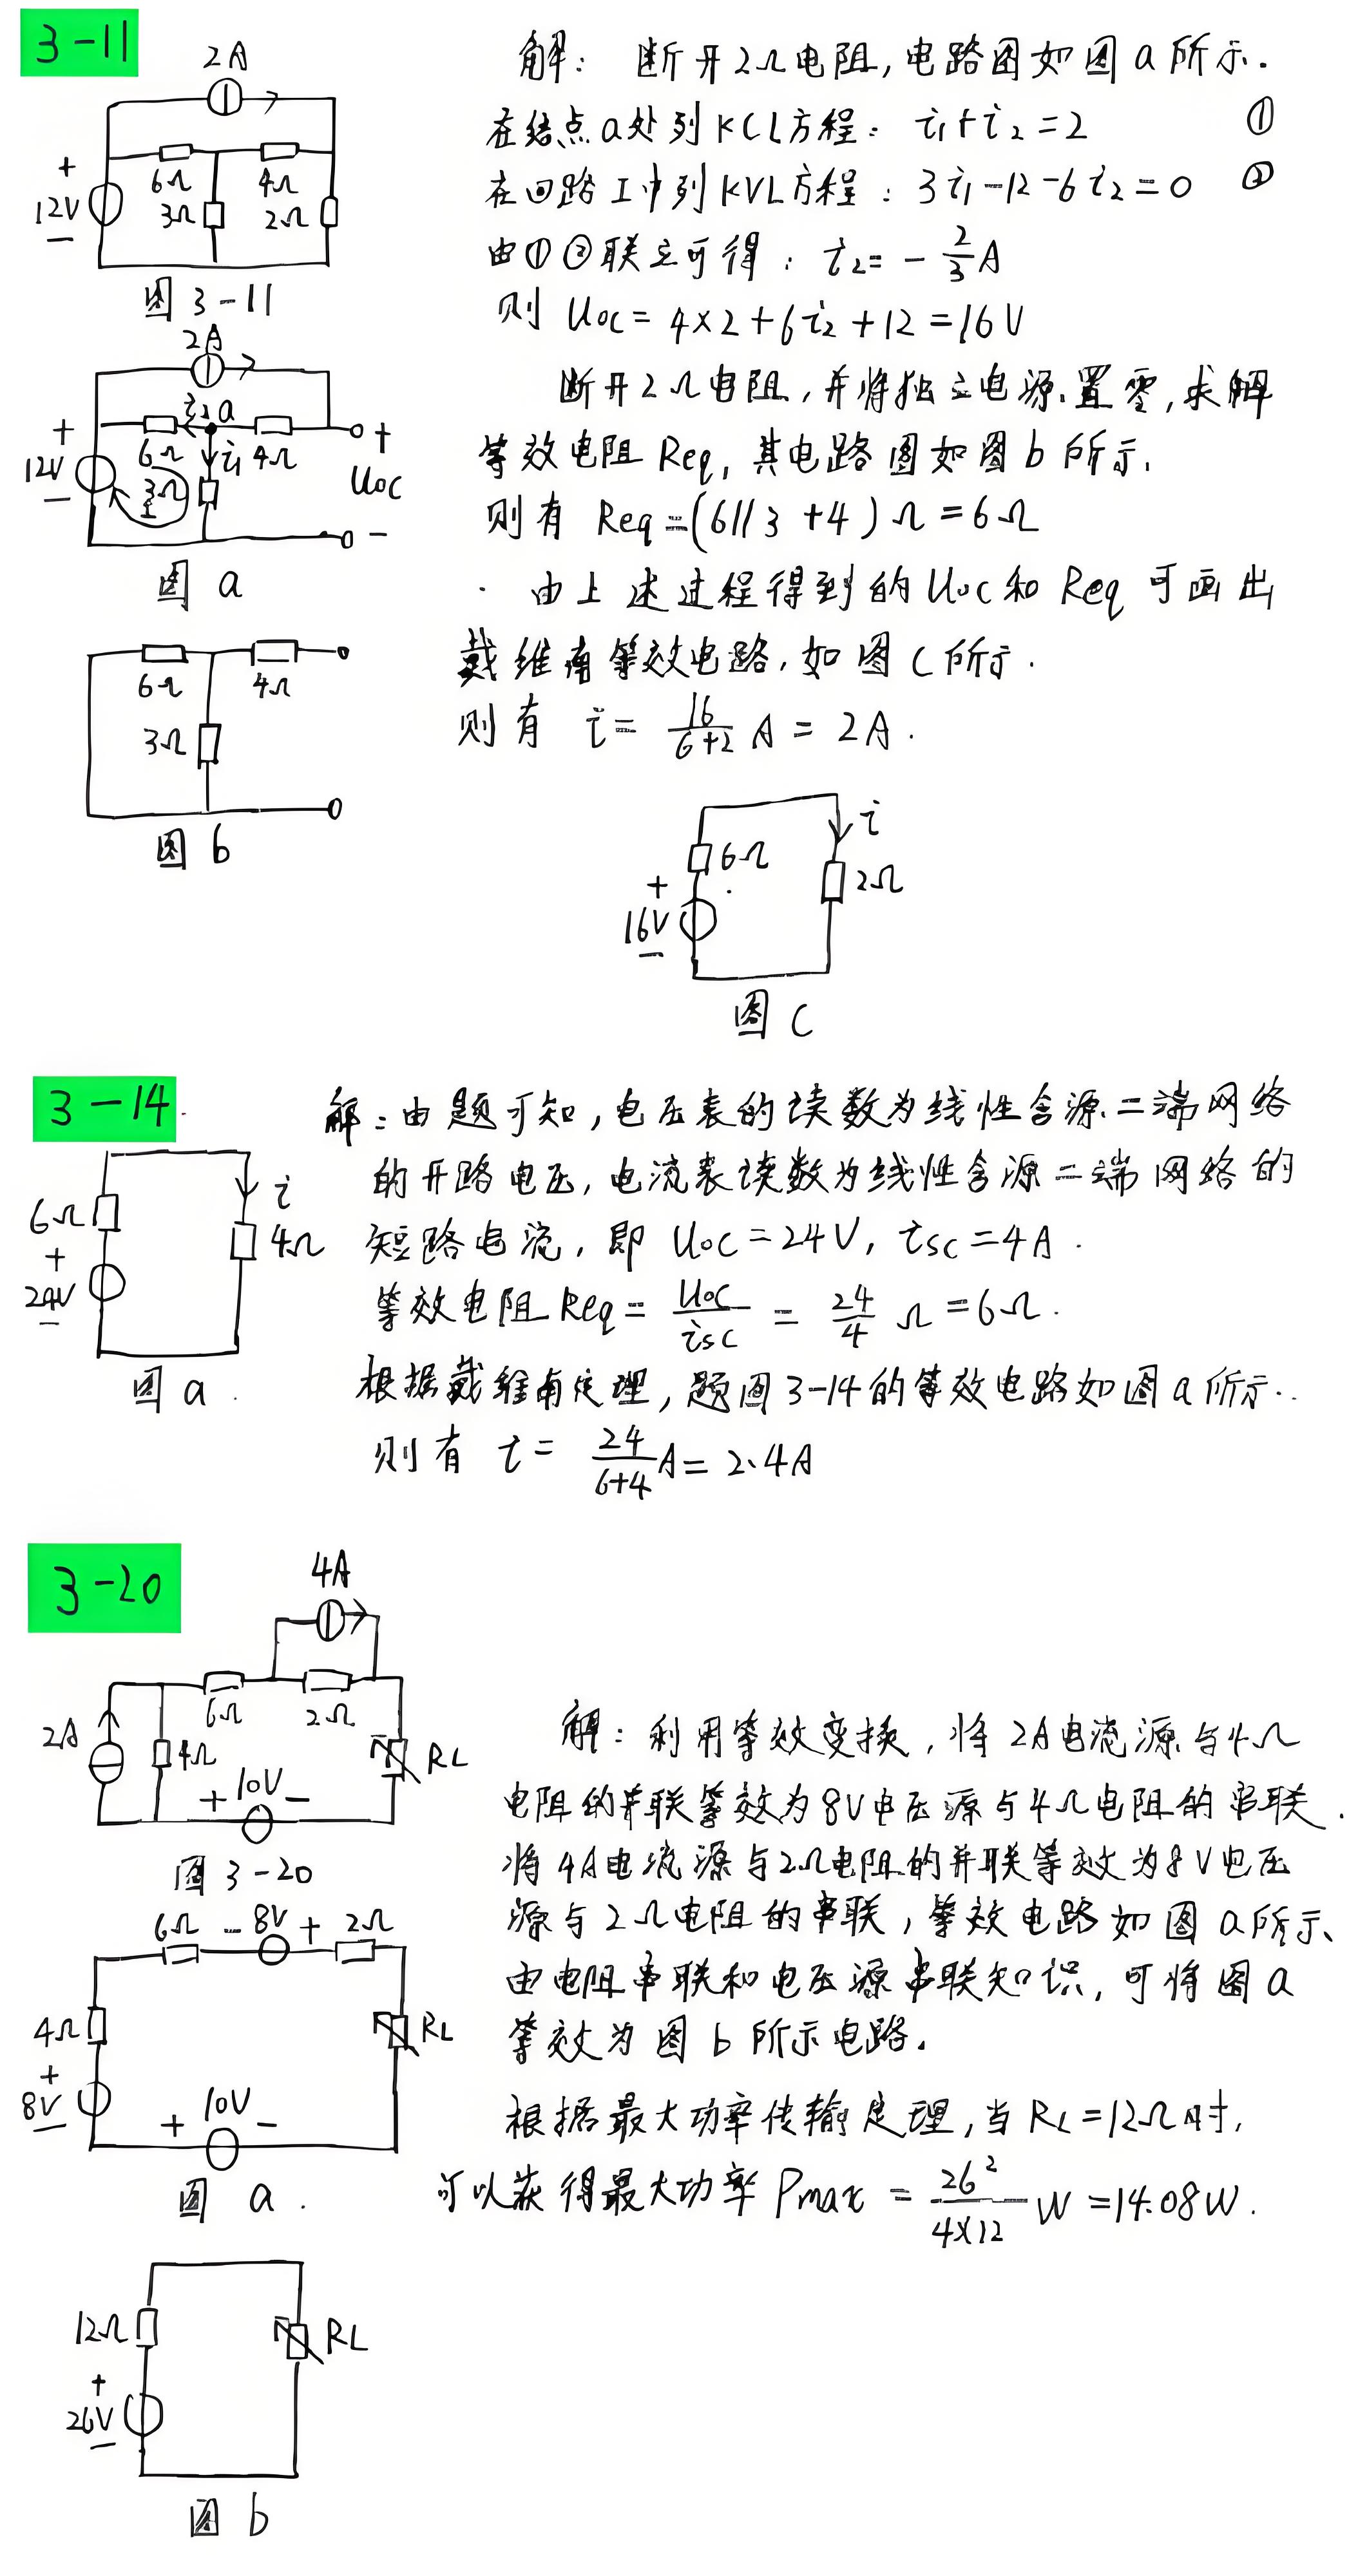 3-11
2A
12V
+
−
6Ω
4Ω
3Ω
2Ω
图 3-11
解： 断开2Ω电阻,电路图如图a所示.
在结点a处列KCL方程： i₁+i₂=2 ①
在回路I中列KVL方程：3i₁-12-6i₂=0 ②
由①②联立可得：i₂=-2/3A
则 Uoc=4×2+6i₂+12=16V
断开2Ω电阻,并将独立电源置零,求解
等效电阻Req,其电路图如图b所示.
则有 Req=(6//3+4)Ω=6Ω
由上述过程得到的Uoc和Req可画出
戴维南等效电路,如图c所示.
则有 i=16/(6+2) A=2A.
2A
+
12V
−
6Ω
i₂
a
i₁
4Ω
3Ω
I
+
Uoc
−
图 a
6Ω
4Ω
3Ω
图 b
6Ω
+
16V
−
i
2Ω
图 c
3-14
6Ω
+
24V
−
i
4Ω
图 a.
解：由题可知,电压表的读数为线性含源二端网络
的开路电压,电流表读数为线性含源二端网络的
短路电流,即 Uoc=24V, isc=4A.
等效电阻Req=Uoc/isc=24/4 Ω=6Ω.
根据戴维南定理,题图3-14的等效电路如图a所示.
则有 i=24/(6+4)A=2.4A
3-20
4A
2A
6Ω
2Ω
4Ω
RL
+ 10V −
图 3-20
解：利用等效变换,将2A电流源与4Ω
电阻的并联等效为8V电压源与4Ω电阻的串联.
将4A电流源与2Ω电阻的并联等效为8V电压
源与2Ω电阻的串联,等效电路如图a所示、
由电阻串联和电压源串联知识,可将图a
等效为图b所示电路.
根据最大功率传输定理,当RL=12Ω时,
可以获得最大功率Pmax=26²/(4×12) W=14.08W.
6Ω − 8V + 2Ω
4Ω
+
8V
−
RL
+ 10V −
图 a.
12Ω
+
26V
−
RL
图 b